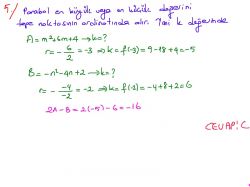 5./ Parabol en büyük veya en küçük değerini
tepe noktasının ordinatında alır. Yani k değerinde
A = m²+6m+4 → k = ?
r = -6/2 = -3 ⇒ k = f(-3) = 9-18+4 = -5
B = -n²-4n+2 → k = ?
r = - -4/-2 = -2 ⇒ k = f(-2) = -4+8+2 = 6
2A - B = 2(-5) - 6 = -16
CEVAP: C